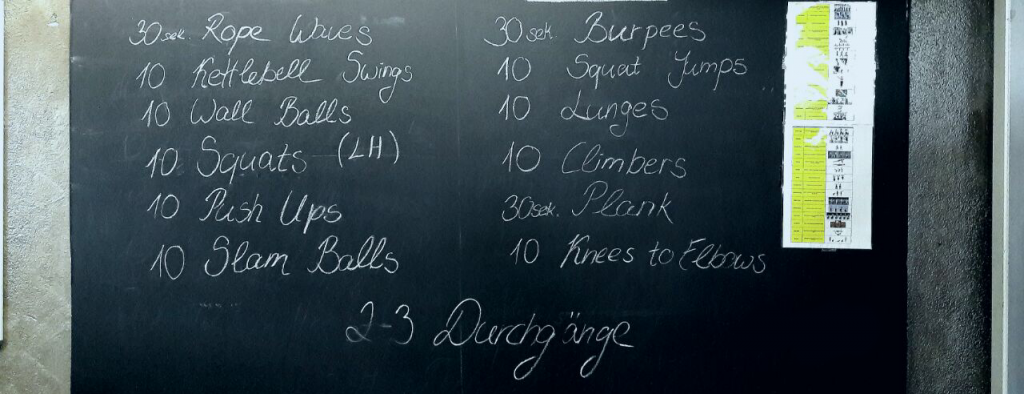 30 sek. Rope Waves
10 Kettlebell Swings
10 Wall Balls
10 Squats (LH)
10 Push Ups
10 Slam Balls
30 sek. Burpees
10 Squat Jumps
10 Lunges
10 Climbers
30 sek. Plank
10 Knees to Elbows
2-3 Durchgänge